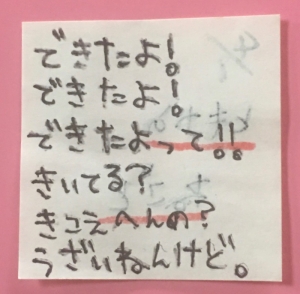 できたよ!
できたよ!
できたよって!!
きいてる?
きこえへんの?
うざいねんけど。